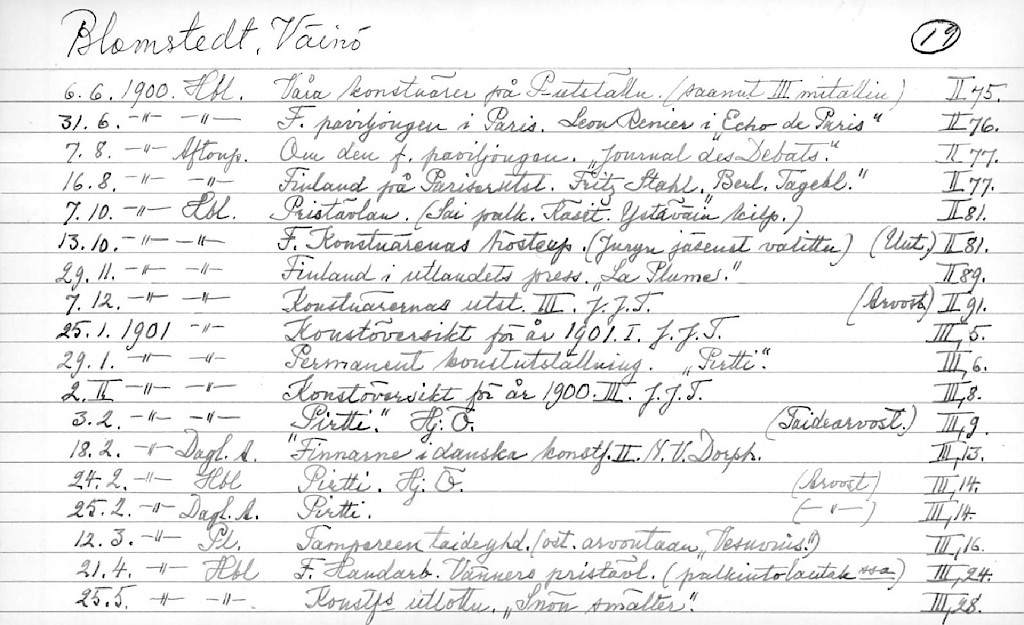 Blomstedt, Väinö 19
6.6. 1900. Hbl. Våra konstnärer på P-utställn. (saanut III mitallin) II 75.
31.6. -"- -"- F. paviljongen i Paris. Leon Renier i "Echo de Paris" II 76.
7.8. -"- Aftonp. Om den f. paviljongen. "Journal des Debats." II 77.
16.8. -"- -"- Finland på Pariserutst. Fritz Stahl, "Berl. Tagebl." II 77.
7.10. -"- Hbl. Pristävlan. (Sai palk. Kaset. Ystäväin kilp.) II 81.
13.10. -"- -"- F. Konstnärernas höstexp. (Juryn jäsenet valittu) (Uut.) II 81.
29.11. -"- -"- Finland i utlandets press. "La Plume." II 89.
7.12. -"- -"- Konstnärernas utst. III. J.J.T. (Arvost.) II 91.
25.1. 1901 -"- Konstöversikt för år 1901. I. J.J.T. III, 5.
29.1. -"- -"- Permanent konstutställning. "Pirtti". III, 6.
2.II -"- -"- Konstöversikt för år 1900. III. J.J.T. III, 8.
3.2. -"- -"- "Pirtti." Hj. Ö. (Taidearvost.) III, 9.
18.2. -"- Dagl. A. "Finnarne i danska konstf. II. N.V. Dorph. III, 13.
24.2. -"- Hbl Pirtti. Hj. Ö. (Arvost.) III, 14.
25.2. -"- Dagl. A. Pirtti. (-"-) III, 14.
12.3. -"- Pl. Tampereen taideyhd. (ost. arvontaan "Vesuvius.") III, 16.
21.4. -"- Hbl F. Handarb. Vänners pristävl. (palkintolautak ssa) III, 24.
25.5. -"- -"- Konstfs utlottn. "Snön smälter". III, 28.